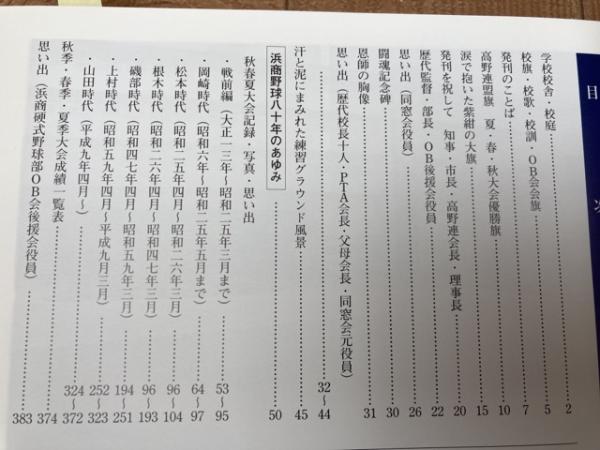 目次
学校校舎・校庭 2
校旗・校歌・校訓・ＯＢ会会旗 5
発刊のことば 7
高野連盟旗 夏・春・秋大会優勝旗 10
涙で抱いた紫紺の大旗 15
発刊を祝して 知事・市長・高野連会長・理事長 20
歴代監督・部長・ＯＢ後援会役員 22
思い出（同窓会役員） 26
闘魂記念碑 30
恩師の胸像 31
思い出（歴代校長十人・ＰＴＡ会長・父母会長・同窓会元役員）
32～44
汗と泥にまみれた練習グラウンド風景 45
浜商野球八十年のあゆみ 50
秋春夏大会記録・写真・思い出
・戦前編（大正一三年～昭和二五年三月まで） 53～95
・岡崎時代（昭和六年～昭和二五年五月まで） 64～97
・松本時代（昭和二五年四月～昭和二六年三月） 96～104
・根木時代（昭和二六年四月～昭和四七年三月） 96～193
・磯部時代（昭和四七年四月～昭和五九年三月） 194～251
・上村時代（昭和五九年四月～平成九年三月） 252～323
・山田時代（平成九年四月～）
秋季・春季・夏季大会成績一覧表 324～372
思い出（浜商硬式野球部ＯＢ会後援会役員） 374
383